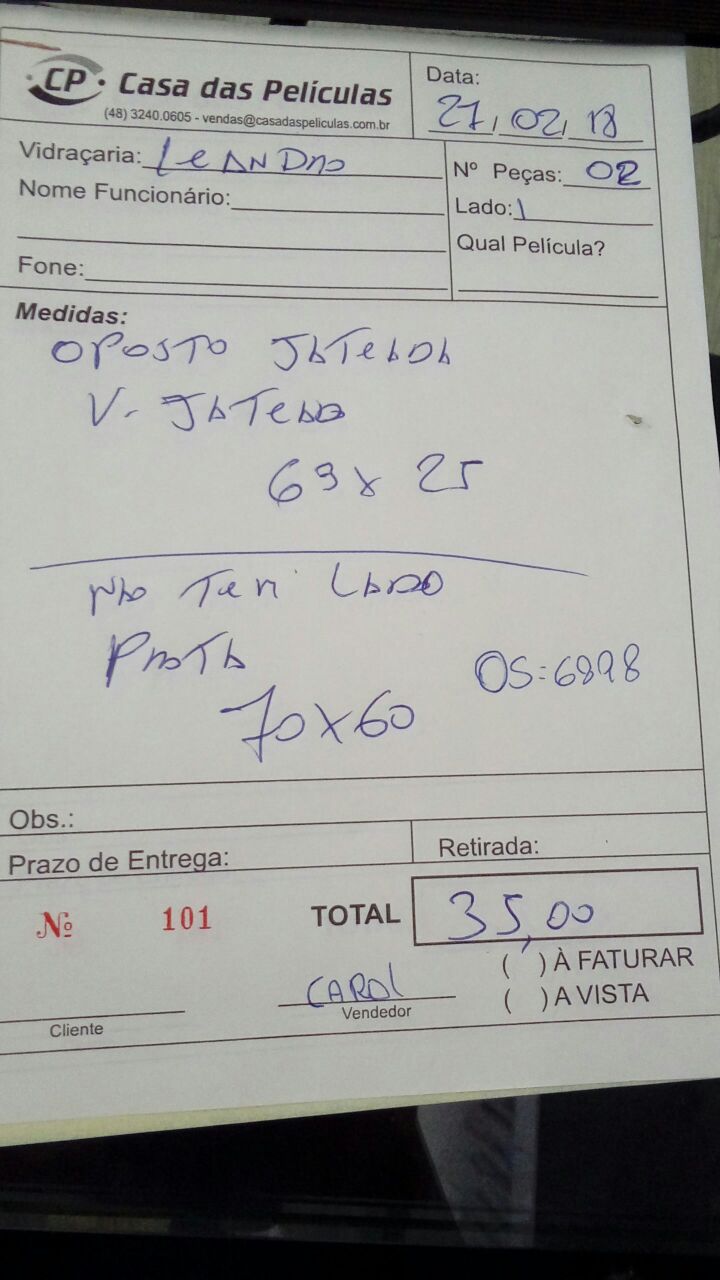 CP Casa das Películas
(48) 3240.0605 - vendas@casadaspeliculas.com.br
Data:
27/02/18
Vidraçaria: Leandro
Nº Peças: 02
Nome Funcionário:
Lado: 1
Qual Película?
Fone:
Medidas:
OPOSTO JATEADA
V. JATEADO
69x25
NÃO TEM LADO
PRATA
OS:6898
70x60
Obs.:
Prazo de Entrega:
Retirada:
Nº 101
TOTAL 35,00
( ) À FATURAR
( ) A VISTA
CAROL
Cliente
Vendedor